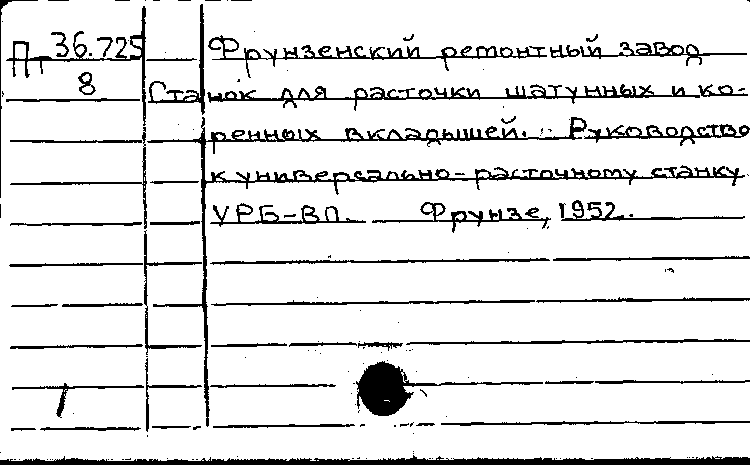 Пт 36.725 Фрунзенский ремонтный завод
8 Станок для расточки шатунных и ко-
ренных вкладышей. Руководство
к универсально-расточному станку
УРБ-ВП. Фрунзе, 1952.